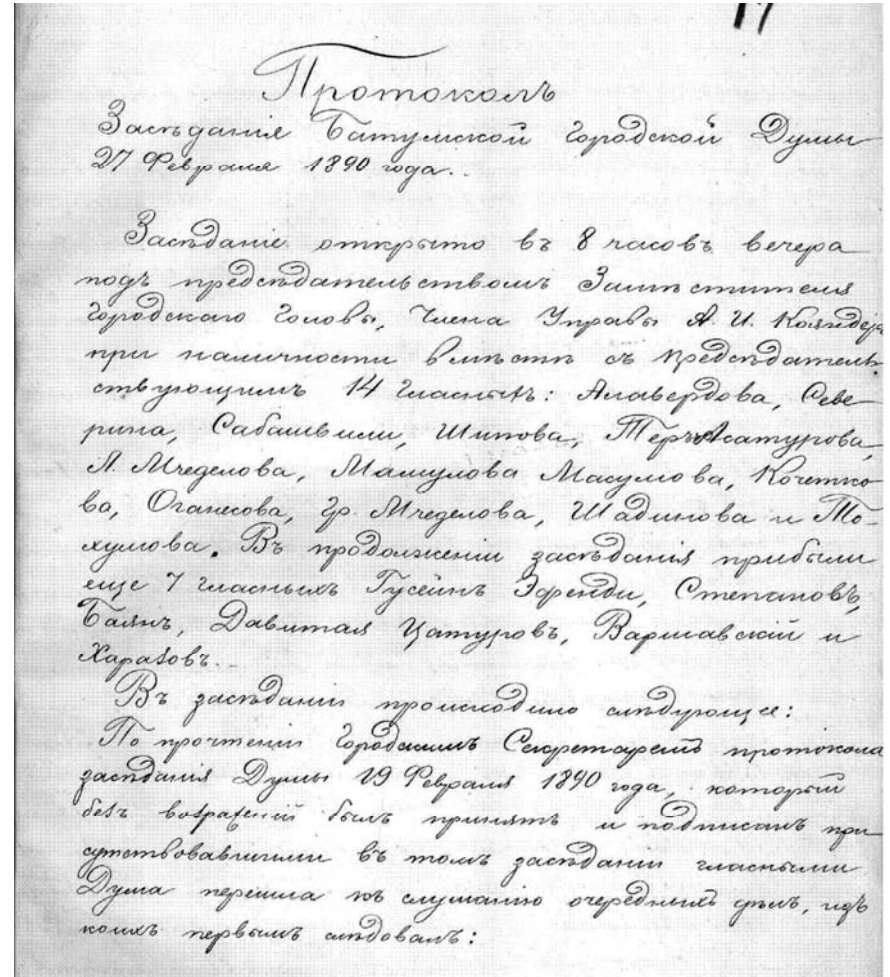 Протоколъ
Засѣданія Батумской Городской Думы
27 Февраля 1890 года.
Засѣданіе открыто въ 8 часовъ вечера
подъ предсѣдательствомъ Заместителя
Городскаго Головы, Члена Управы А. И.
при наличности вмѣстѣ съ предсѣдатель-
ствующимъ 14 гласныхъ: Алавердова, Севе-
рина, Сабашвили, Шипова, Теръ-Асатурова,
А. Мчеделова, Мамулова Масумова, Кочетко-
ва, Оганесова, Гр. Мчеделова, Шадинова и То-
хумова. Въ продолженіи засѣданія прибыли
еще 7 гласныхъ Гусеинъ Эфенди, Степановъ,
Баянъ, Давитая Цатуровъ, Варшавскій и
Харазовъ.
Въ засѣданіи происходило слѣдующее:
По прочтеніи Городскимъ Секретаремъ протокола
засѣданія Думы 19 Февраля 1890 года, который
безъ возраженій былъ принятъ и подписанъ при
сутствовавшими въ томъ засѣданіи гласными
Дума перешла къ слушанію очередныхъ дѣлъ, изъ
коихъ первымъ слѣдовалъ: